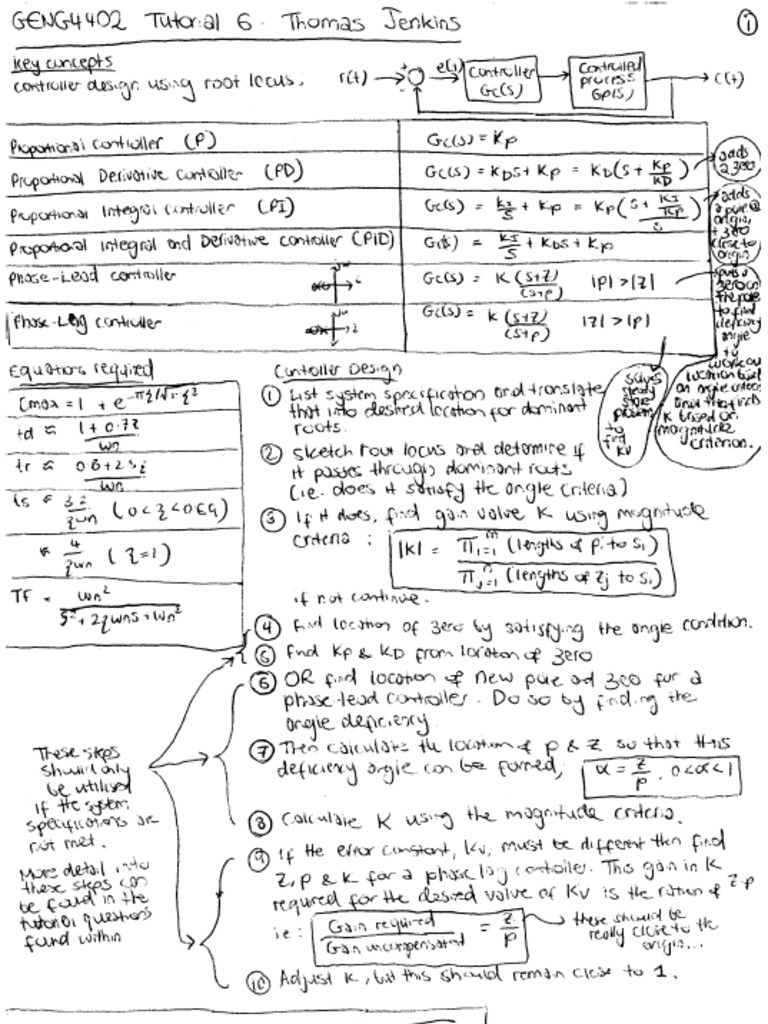 GENG4402 Tutorial 6. Thomas Jenkins
①
Key concepts
controller design using root locus.
r(t) + - e(t) Controller Gc(s) Controlled process Gp(s) c(t)
Proportional controller (P) Gc(s) = Kp
Proportional Derivative controller (PD) Gc(s) = KDs + Kp = KD(s + Kp/KD)
adds a zero
Proportional Integral controller (PI) Gc(s) = KI/s + Kp = Kp(s + KI/Kp)/s
adds a pole @ origin, + zero close to origin
Proportional Integral and Derivative controller (PID) G(s) = KI/s + KDs + Kp
Phase-Lead controller Gc(s) = K (s+z)/(s+p) |p| > |z|
Phase-Lag controller Gc(s) = K (s+z)/(s+p) |z| > |p|
puts a zero on the pole to find deficiency angle to work out location based on angle criterion and then finds K based on magnitude criterion.
solves steady state problems to find Kv
Equations required
Cmax = 1 + e^-πζ/√1-ζ²
td ≈ 1 + 0.7ζ / ωn
tr ≈ 0.8 + 2.5ζ / ωn
ts ≈ 3.2 / ζωn (0 < ζ < 0.69)
≈ 4 / ζωn (ζ = 1)
TF = ωn² / s² + 2ζωns + ωn²
Controller Design
① List system specification and translate
that into desired location for dominant
roots.
② Sketch root locus and determine if
it passes through dominant roots
(ie. does it satisfy the angle criteria)
③ If it does, find gain value K using magnitude
criteria : |K| = Π i=1 m (lengths of pi to s1) / Π j=1 n (lengths of zj to s1)
if not continue.
④ Find location of zero by satisfying the angle condition.
⑤ Find Kp & KD from location of zero
⑥ OR find location of new pole and zero for a
phase-lead controller. Do so by finding the
angle deficiency.
⑦ Then calculate the location of p & z so that this
deficiency angle can be formed, α = z/p, 0<α<1
⑧ Calculate K using the magnitude criteria.
⑨ If the error constant, Kv, must be different then find
z, p & K for a phase lag controller. This gain in K
required for the desired value of Kv is the ration of z-p
ie : Gain required / Gain uncompensated = z/p
these should be
really close to the
origin...
⑩ Adjust K, but this should remain close to 1.
These steps
should only
be utilised
if the system
specifications are
not met.
More detail into
these steps can
be found in the
tutorial questions
found within